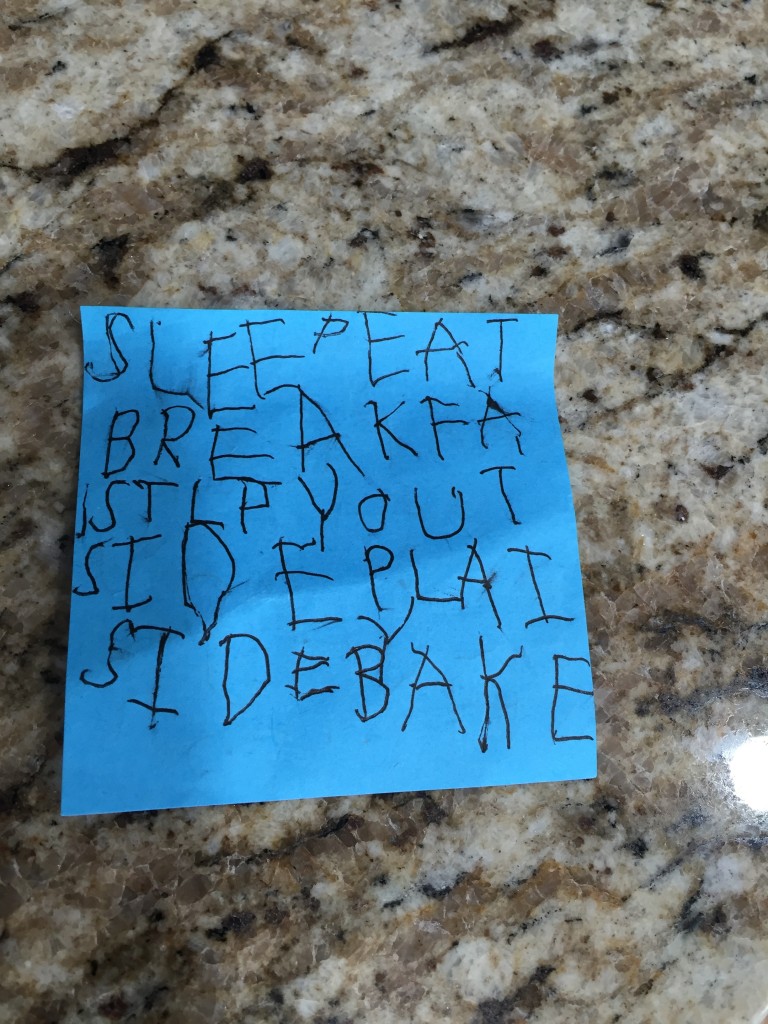 SLEEP EAT
BREAKFA
ST LPY OUT
SIDE PLAyI
SIDE BAKE